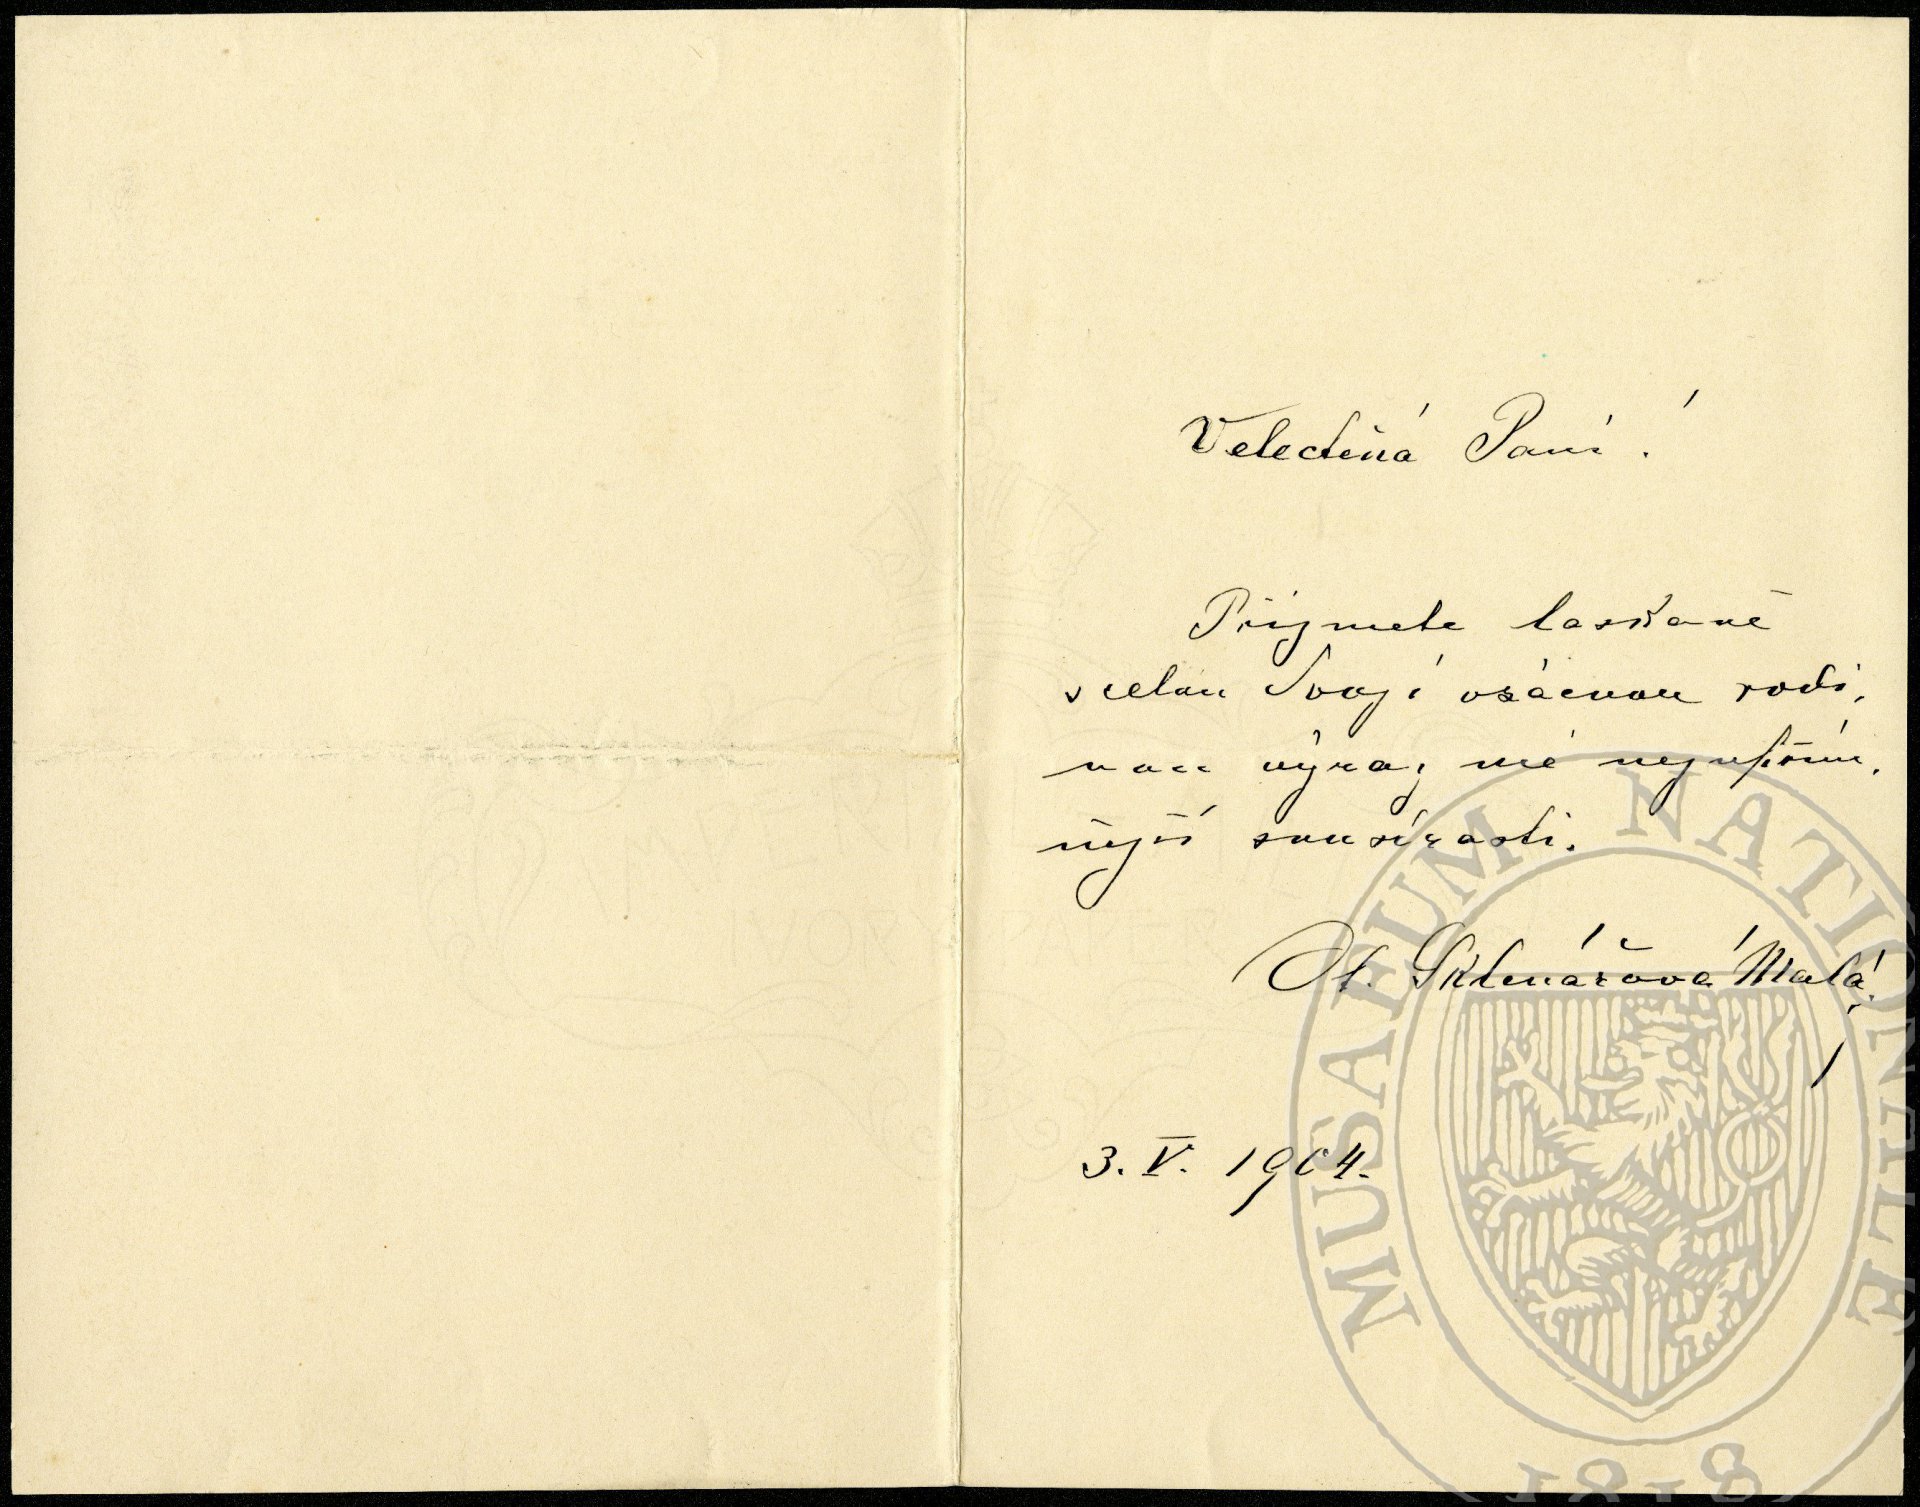 Velectěná Paní!
Přijměte laskavě
s celou Svojí vzácnou rodi,
nou výraz mé nejupřím,
nější soustrasti.
Ot. Sklenářová Malá.
3. V. 1904.
MUSAEUM NATIONALE
1818